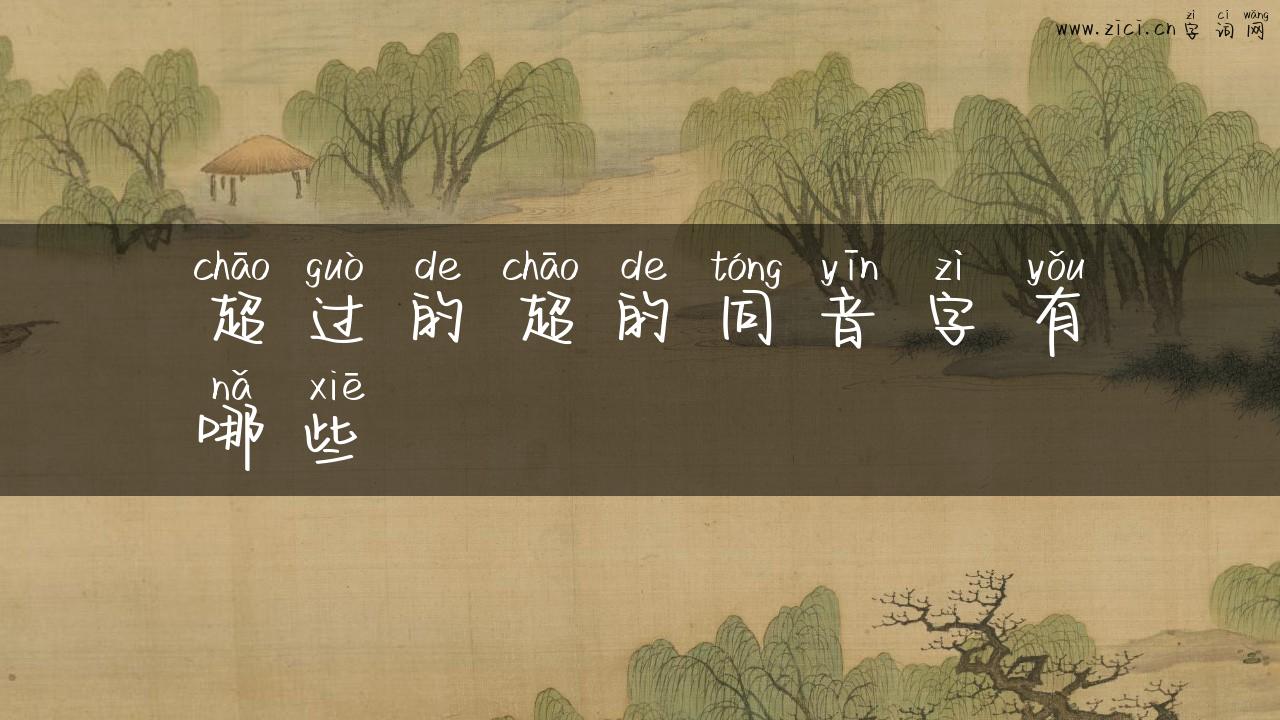 zì cí wǎng
www.zici.cn 字词网
chāo guò de chāo de tóng yīn zì yǒu
超过的超的同音字有
nǎ xiē
哪些